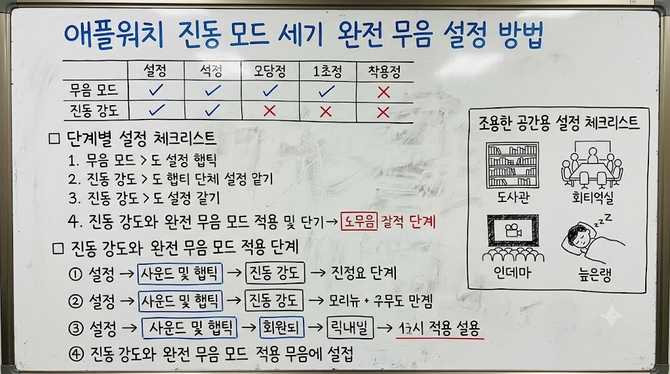 애플워치 진동 모드 세기 완전 무음 설정 방법
설정 석정 오당정 1초정 착용정
무음 모드 ✓ ✓ ✓ ✓ ✗
진동 강도 ✓ ✓ ✗ ✗ ✗
□ 단계별 설정 체크리스트
1. 무음 모드 > 도 설정 햅틱
2. 진동 강도 > 도 햅티 단체 설정 맡기
3. 진동 강도 > 도 설정 갈기
4. 진동 강도와 완전 무음 모드 적용 및 단기 → 노무음 잘적 단계
□ 진동 강도와 완전 무음 모드 적용 단계
① 설정 → 사운드 및 햅틱 → 진동 강도 → 진정요 단계
② 설정 → 사운드 및 햅틱 → 진동 강도 → 모리뉴 + 우무도 만겜
③ 설정 → 사운드 및 햅틱 → 회완되 → 릭내밀 → 적용 설용
④ 진동 강도와 완전 무음 모드 적용 무음에 설접
조용한 공간용 설정 체크리스트
도사관 회티악실
인데마 늪은랭
zzZ